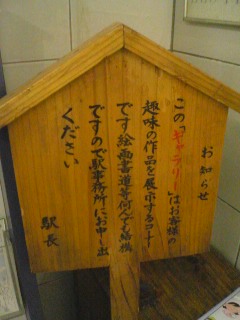 お知らせ
この「ギャラリー」はお客様の
趣味の作品を展示するコーナー
です絵画書道等何んでも結構
ですので駅事務所にお申し出
ください
駅長